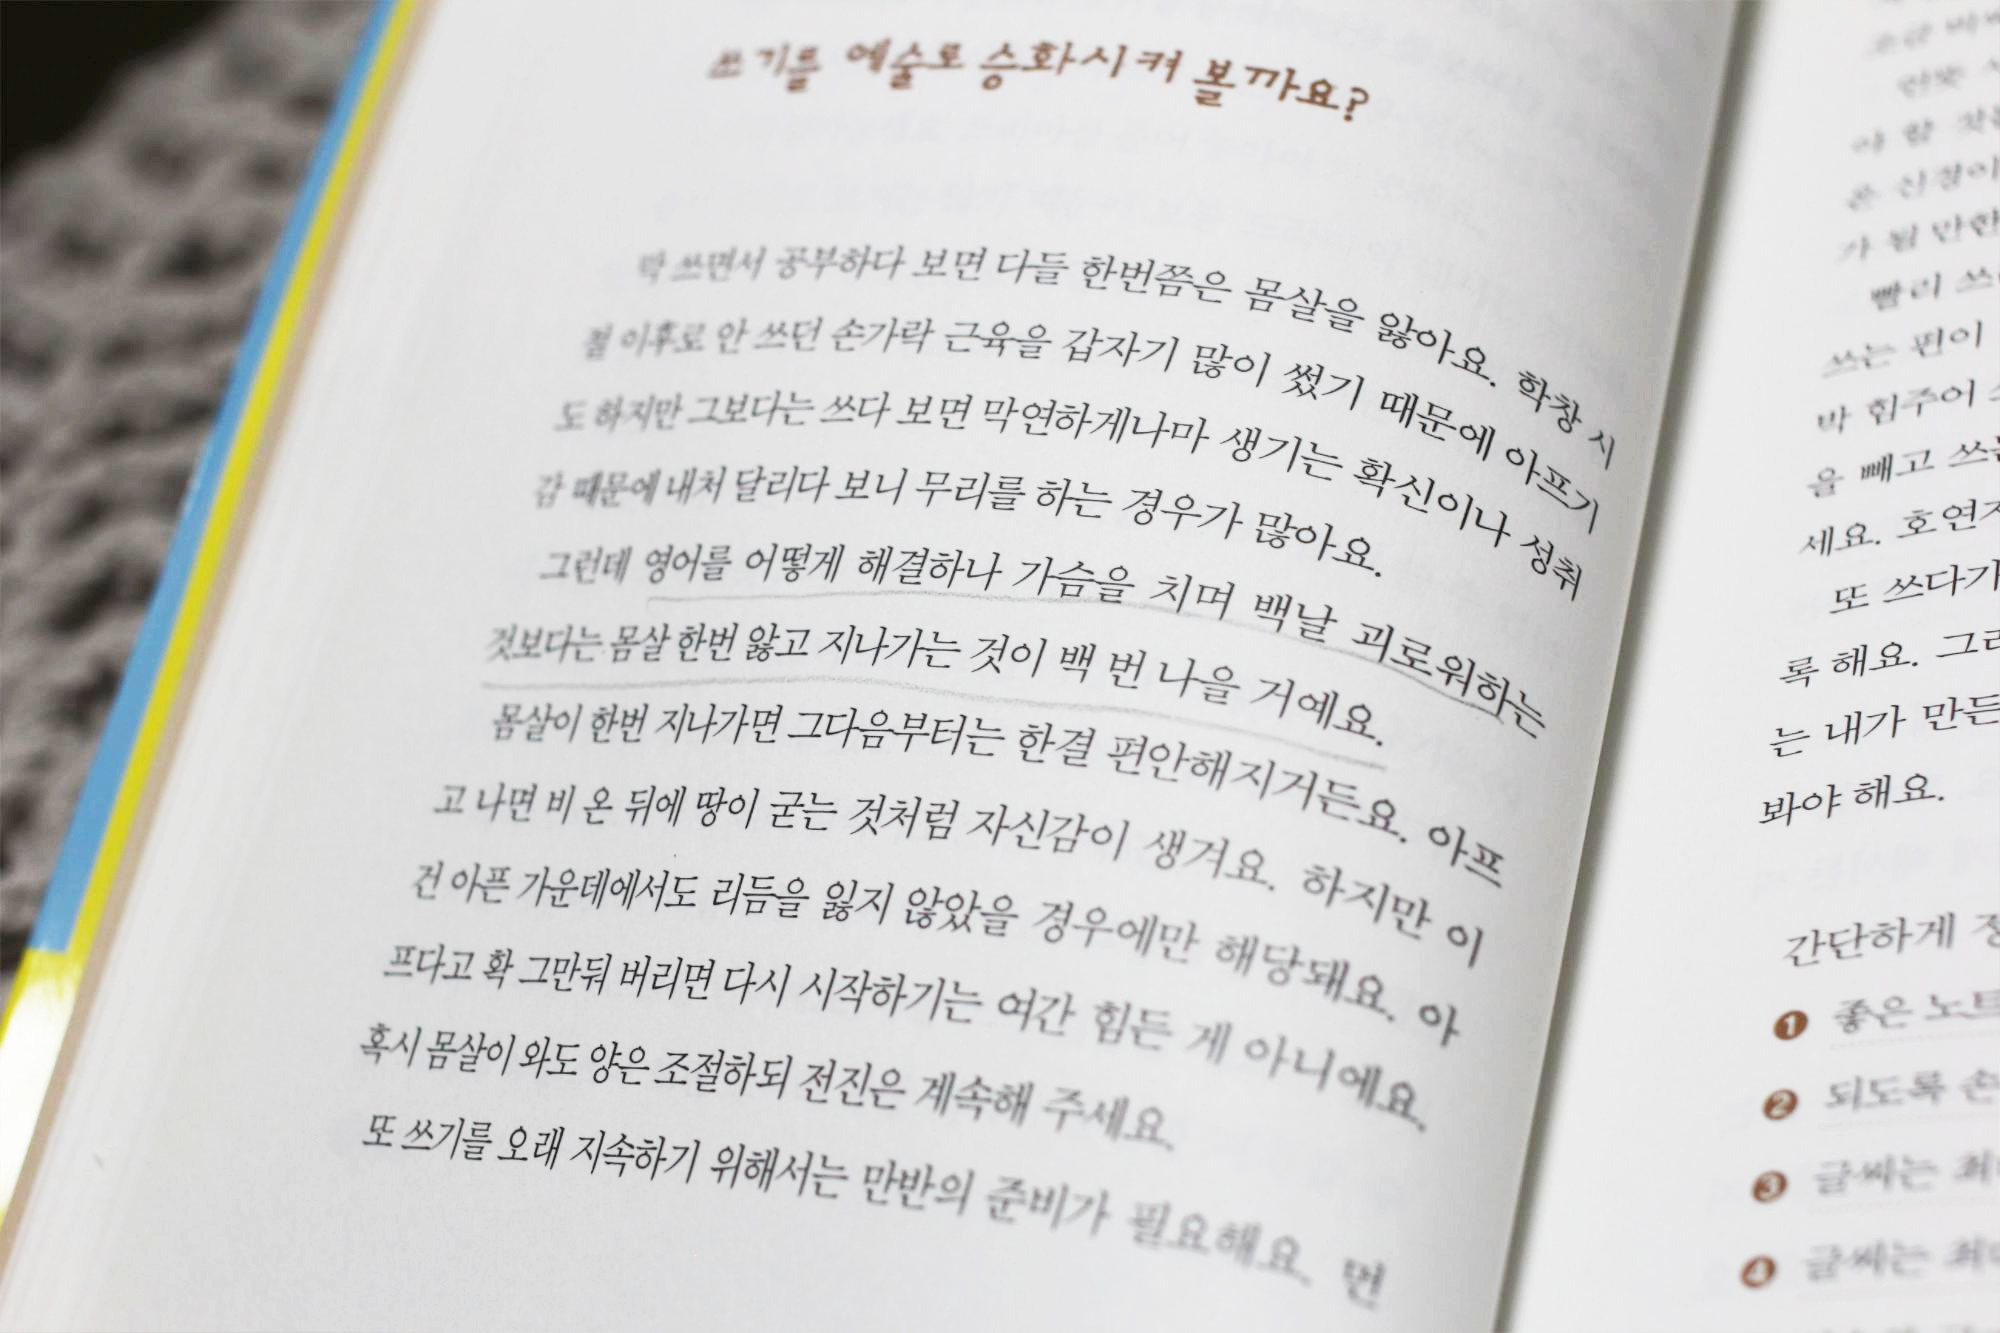 쓰기를 예술로 승화시켜 볼까요?
막 쓰면서 공부하다 보면 다들 한번쯤은 몸살을 앓아요. 학창 시
절 이후로 안 쓰던 손가락 근육을 갑자기 많이 썼기 때문에 아프기
도 하지만 그보다는 쓰다 보면 막연하게나마 생기는 확신이나 성취
감 때문에 내처 달리다 보니 무리를 하는 경우가 많아요.
그런데 영어를 어떻게 해결하나 가슴을 치며 백날 괴로워하는
것보다는 몸살 한번 앓고 지나가는 것이 백 번 나을 거예요.
몸살이 한번 지나가면 그다음부터는 한결 편안해지거든요. 아프
고 나면 비 온 뒤에 땅이 굳는 것처럼 자신감이 생겨요. 하지만 이
건 아픈 가운데에서도 리듬을 잃지 않았을 경우에만 해당돼요. 아
프다고 확 그만둬 버리면 다시 시작하기는 여간 힘든 게 아니에요.
혹시 몸살이 와도 양은 조절하되 전진은 계속해 주세요.
또 쓰기를 오래 지속하기 위해서는 만반의 준비가 필요해요. 먼
온 신경이
가 될 만한
빨리
쓰는 편이
박 힘주어
을 빼고 쓰는
세요.
또 쓰다가
록 해요.
는 내가 만든
봐야 해요.
간단하게
1 좋은 노트
2 되도록 손
3 글씨는
4 글씨는